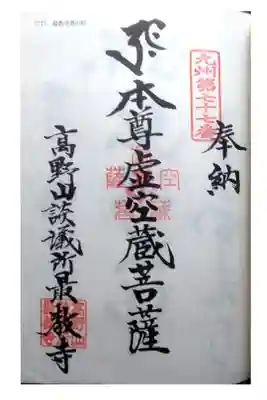 九州第七十七番
奉納
本尊虚空蔵菩薩
高野山談議所最教寺